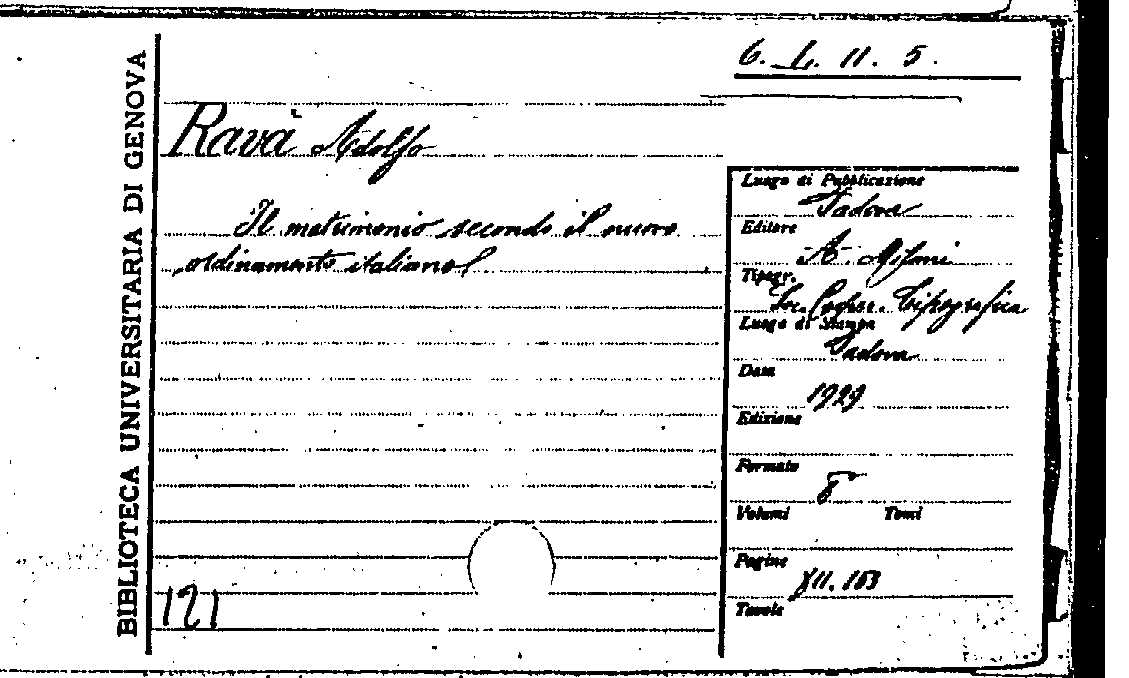 6. L. 11. 5.
BIBLIOTECA UNIVERSITARIA DI GENOVA
Ravà Adolfo
Il matrimonio secondo il nuovo
ordinamento italiano
Luogo di Pubblicazione
Padova
Editore
A. Milani
Tipogr.
Soc. Coop. Tipografica
Luogo di Stampa
Padova
Data
1929
Edizione
Formato
8
Volumi Tomi
Pagine
XII. 163
Tavole
121